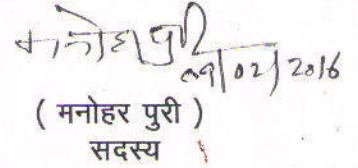 मनोहर पुरी
/02/2016
( मनोहर पुरी )
सदस्य